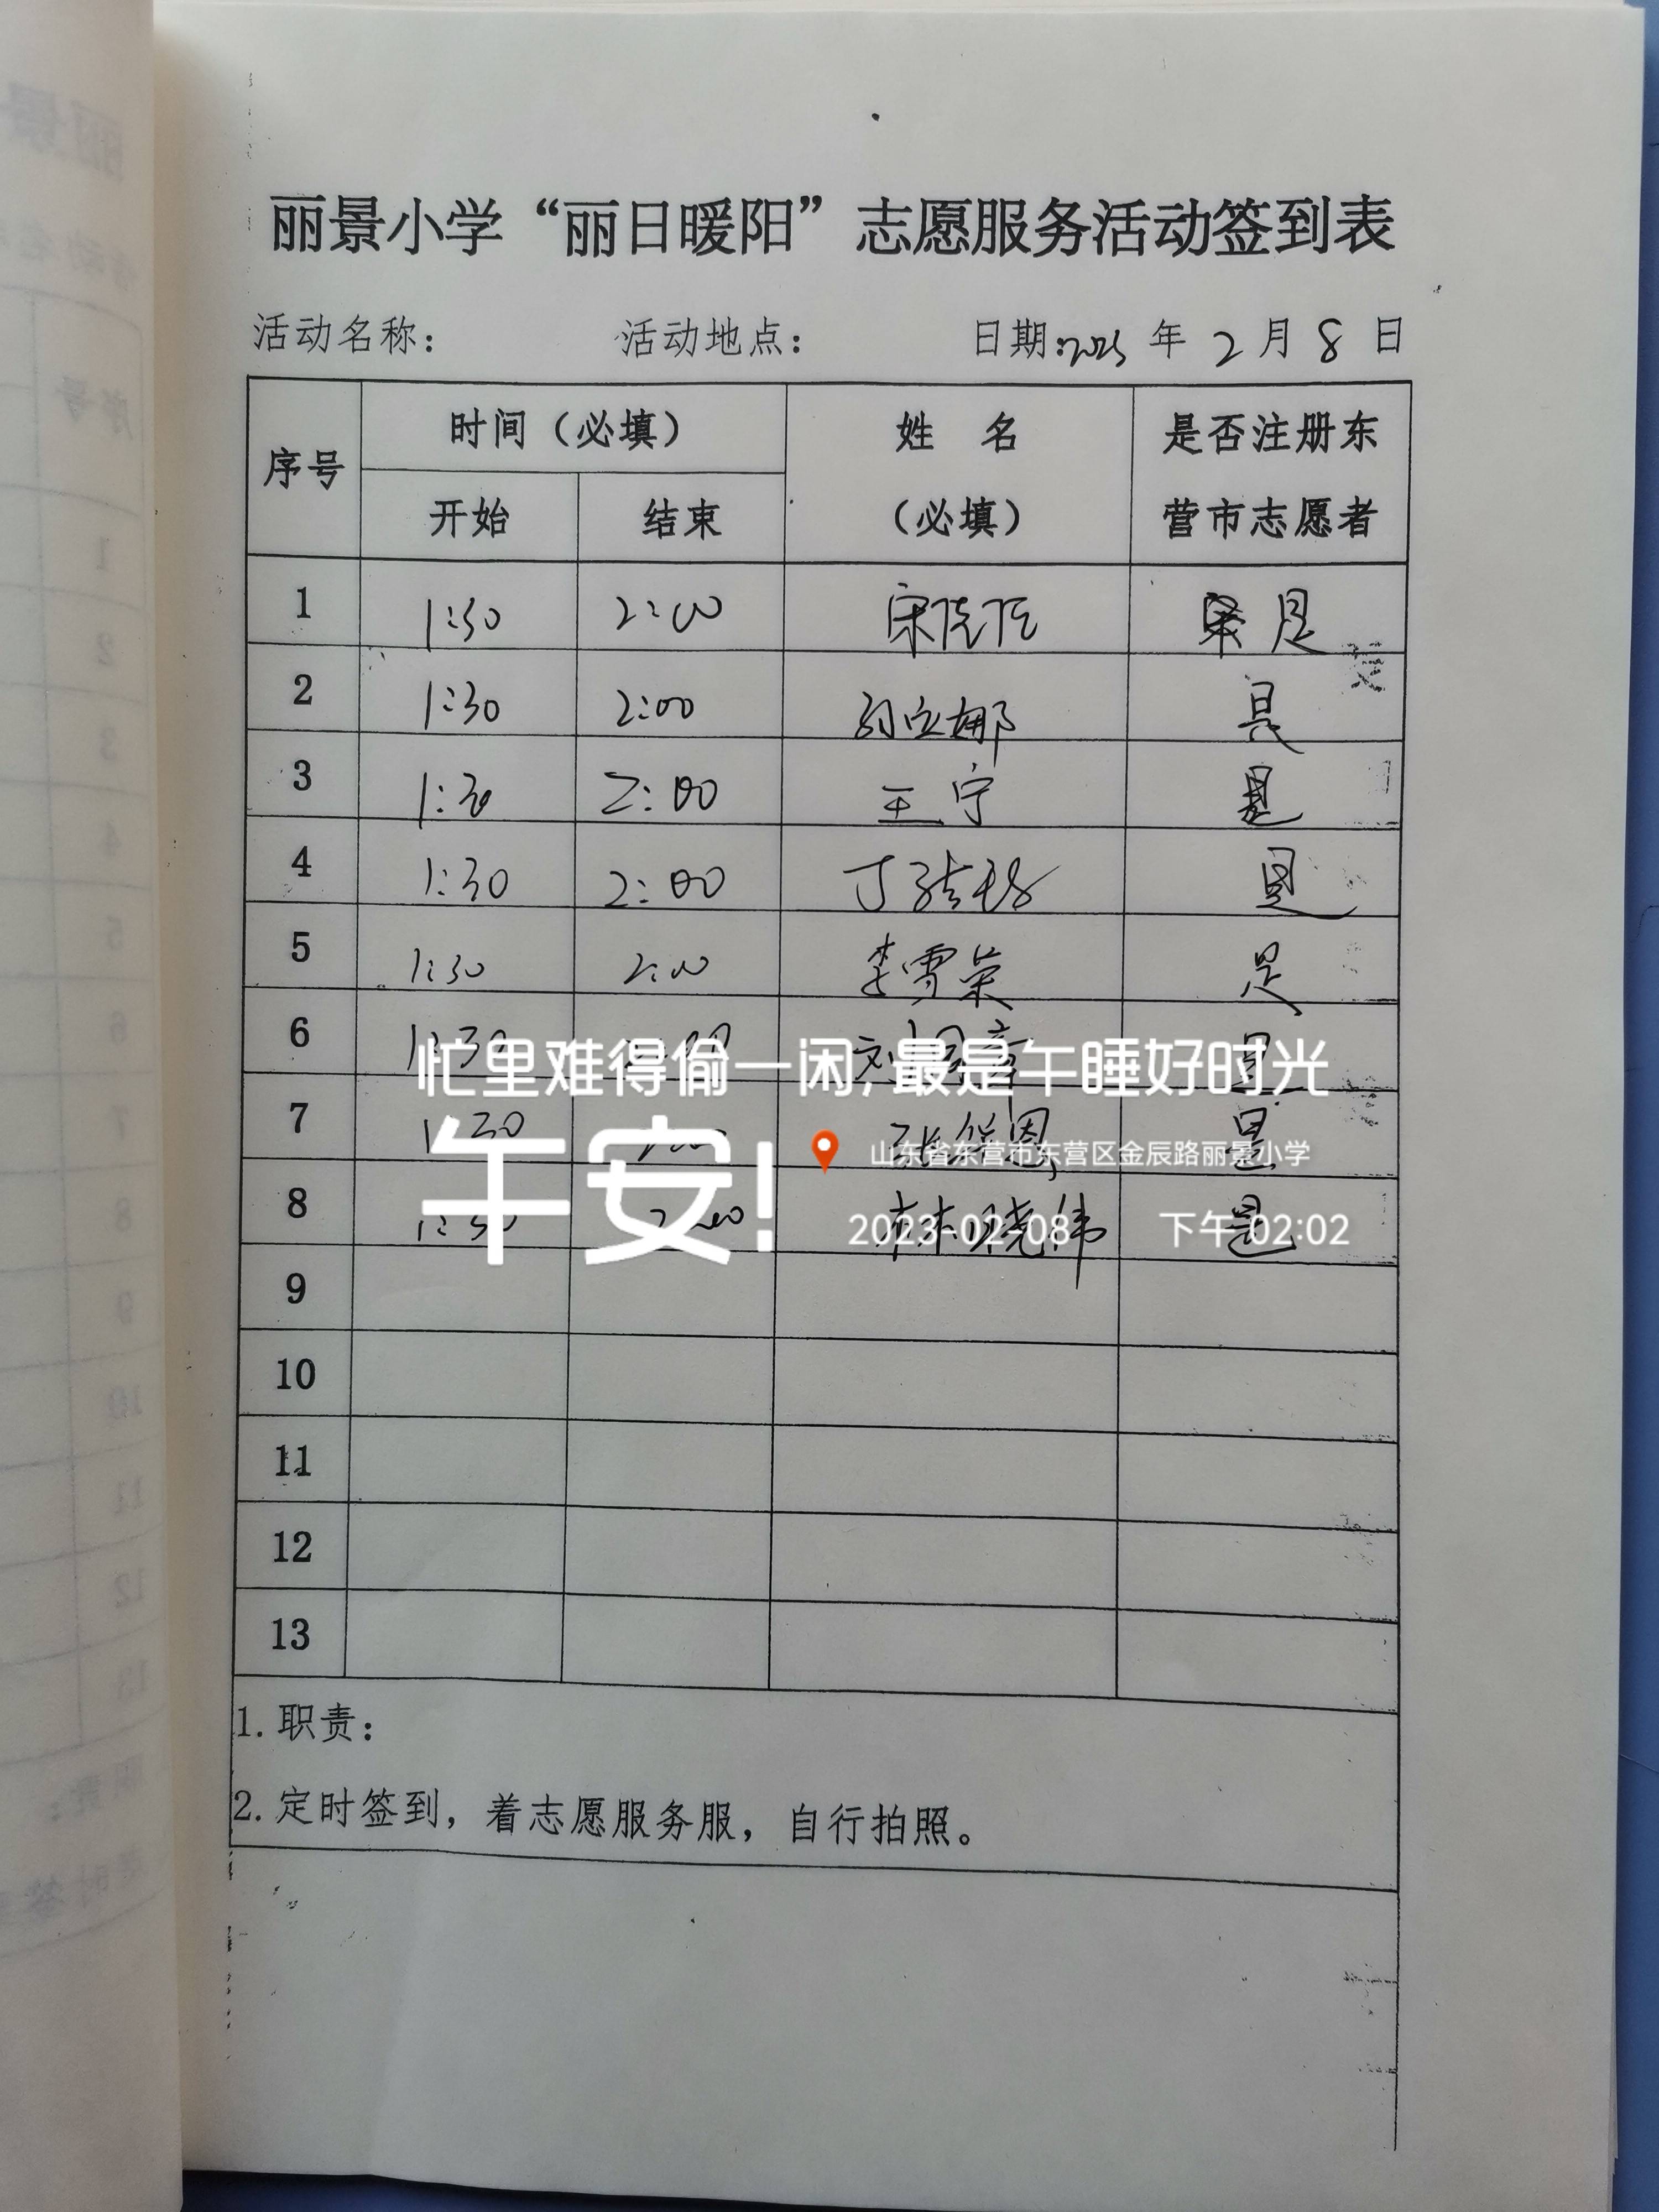 丽景小学“丽日暖阳”志愿服务活动签到表
活动名称： 活动地点： 日期：2023 年 2 月 8 日
序号 时间（必填） 姓 名（必填） 是否注册东营市志愿者
开始 结束
1 1:30 2:00 宋 是
2 1:30 2:00 娜 是
3 1:30 2:00 王宁 是
4 1:30 2:00 丁 是
5 1:30 2:00 李雪荣 是
6 1:30 刘 是
忙里难得偷一闲，最是午睡好时光
7 1:30 2:00 张华恩 是
午安！
山东省东营市东营区金辰路丽景小学
8 1:30 2:00 林晓伟 是
2023-02-08 下午 02:02
9
10
11
12
13
1.职责：
2.定时签到，着志愿服务服，自行拍照。